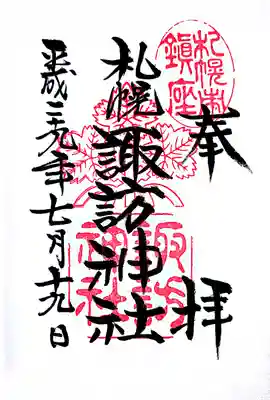 奉拝
札幌市鎮座
札幌諏訪神社
諏訪神社
平成二九年七月十九日